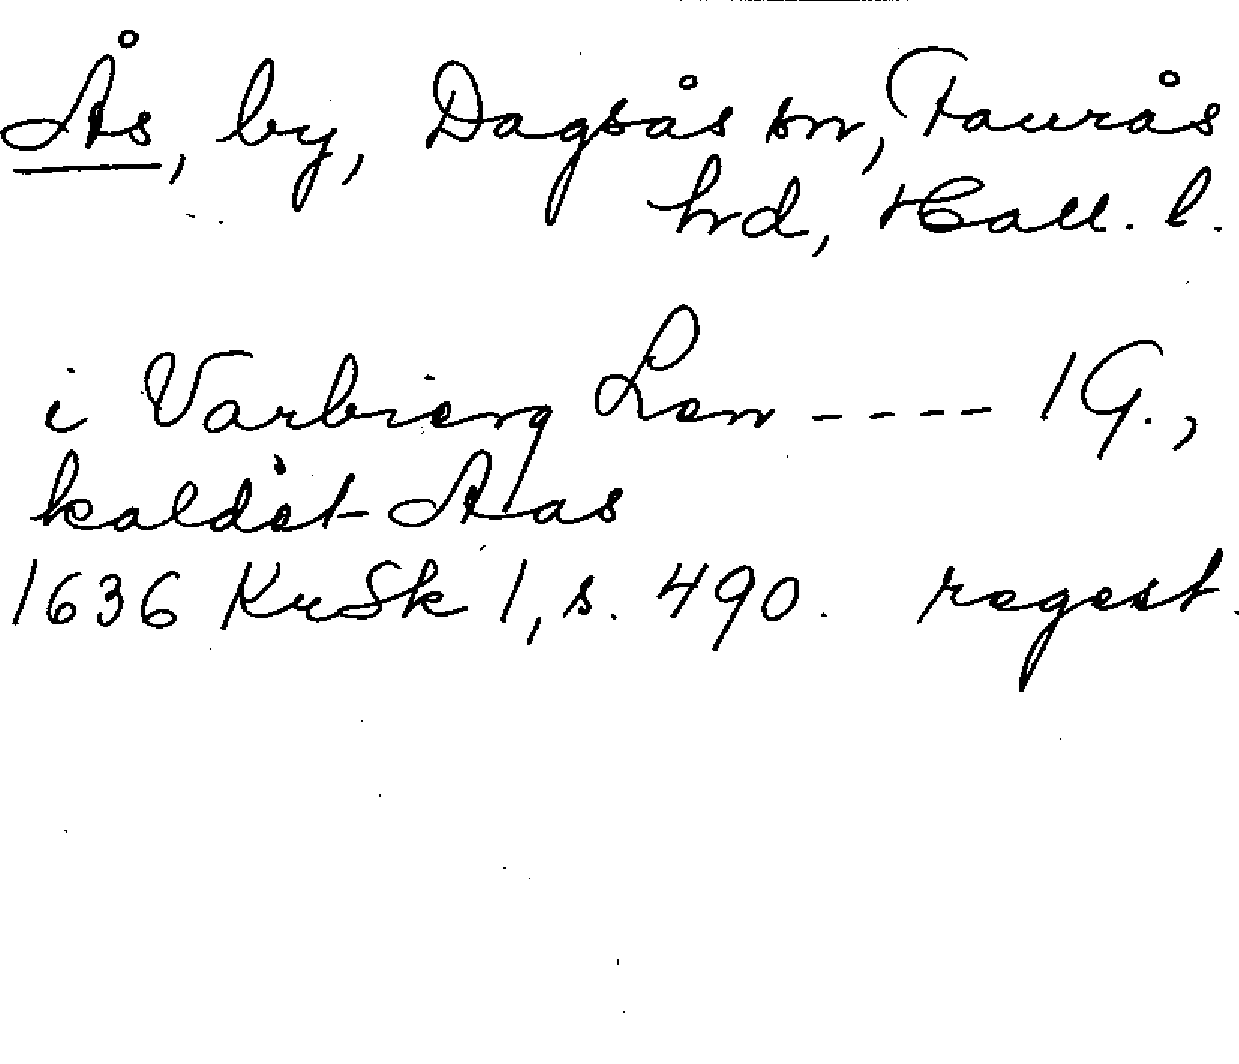 Ås, by, Dagsås sn, Faurås
hrd, Hall. l.
i Varbierg Len ---- 1 G.,
kaldet Aas
1636 KrSk 1, s. 490. regest.